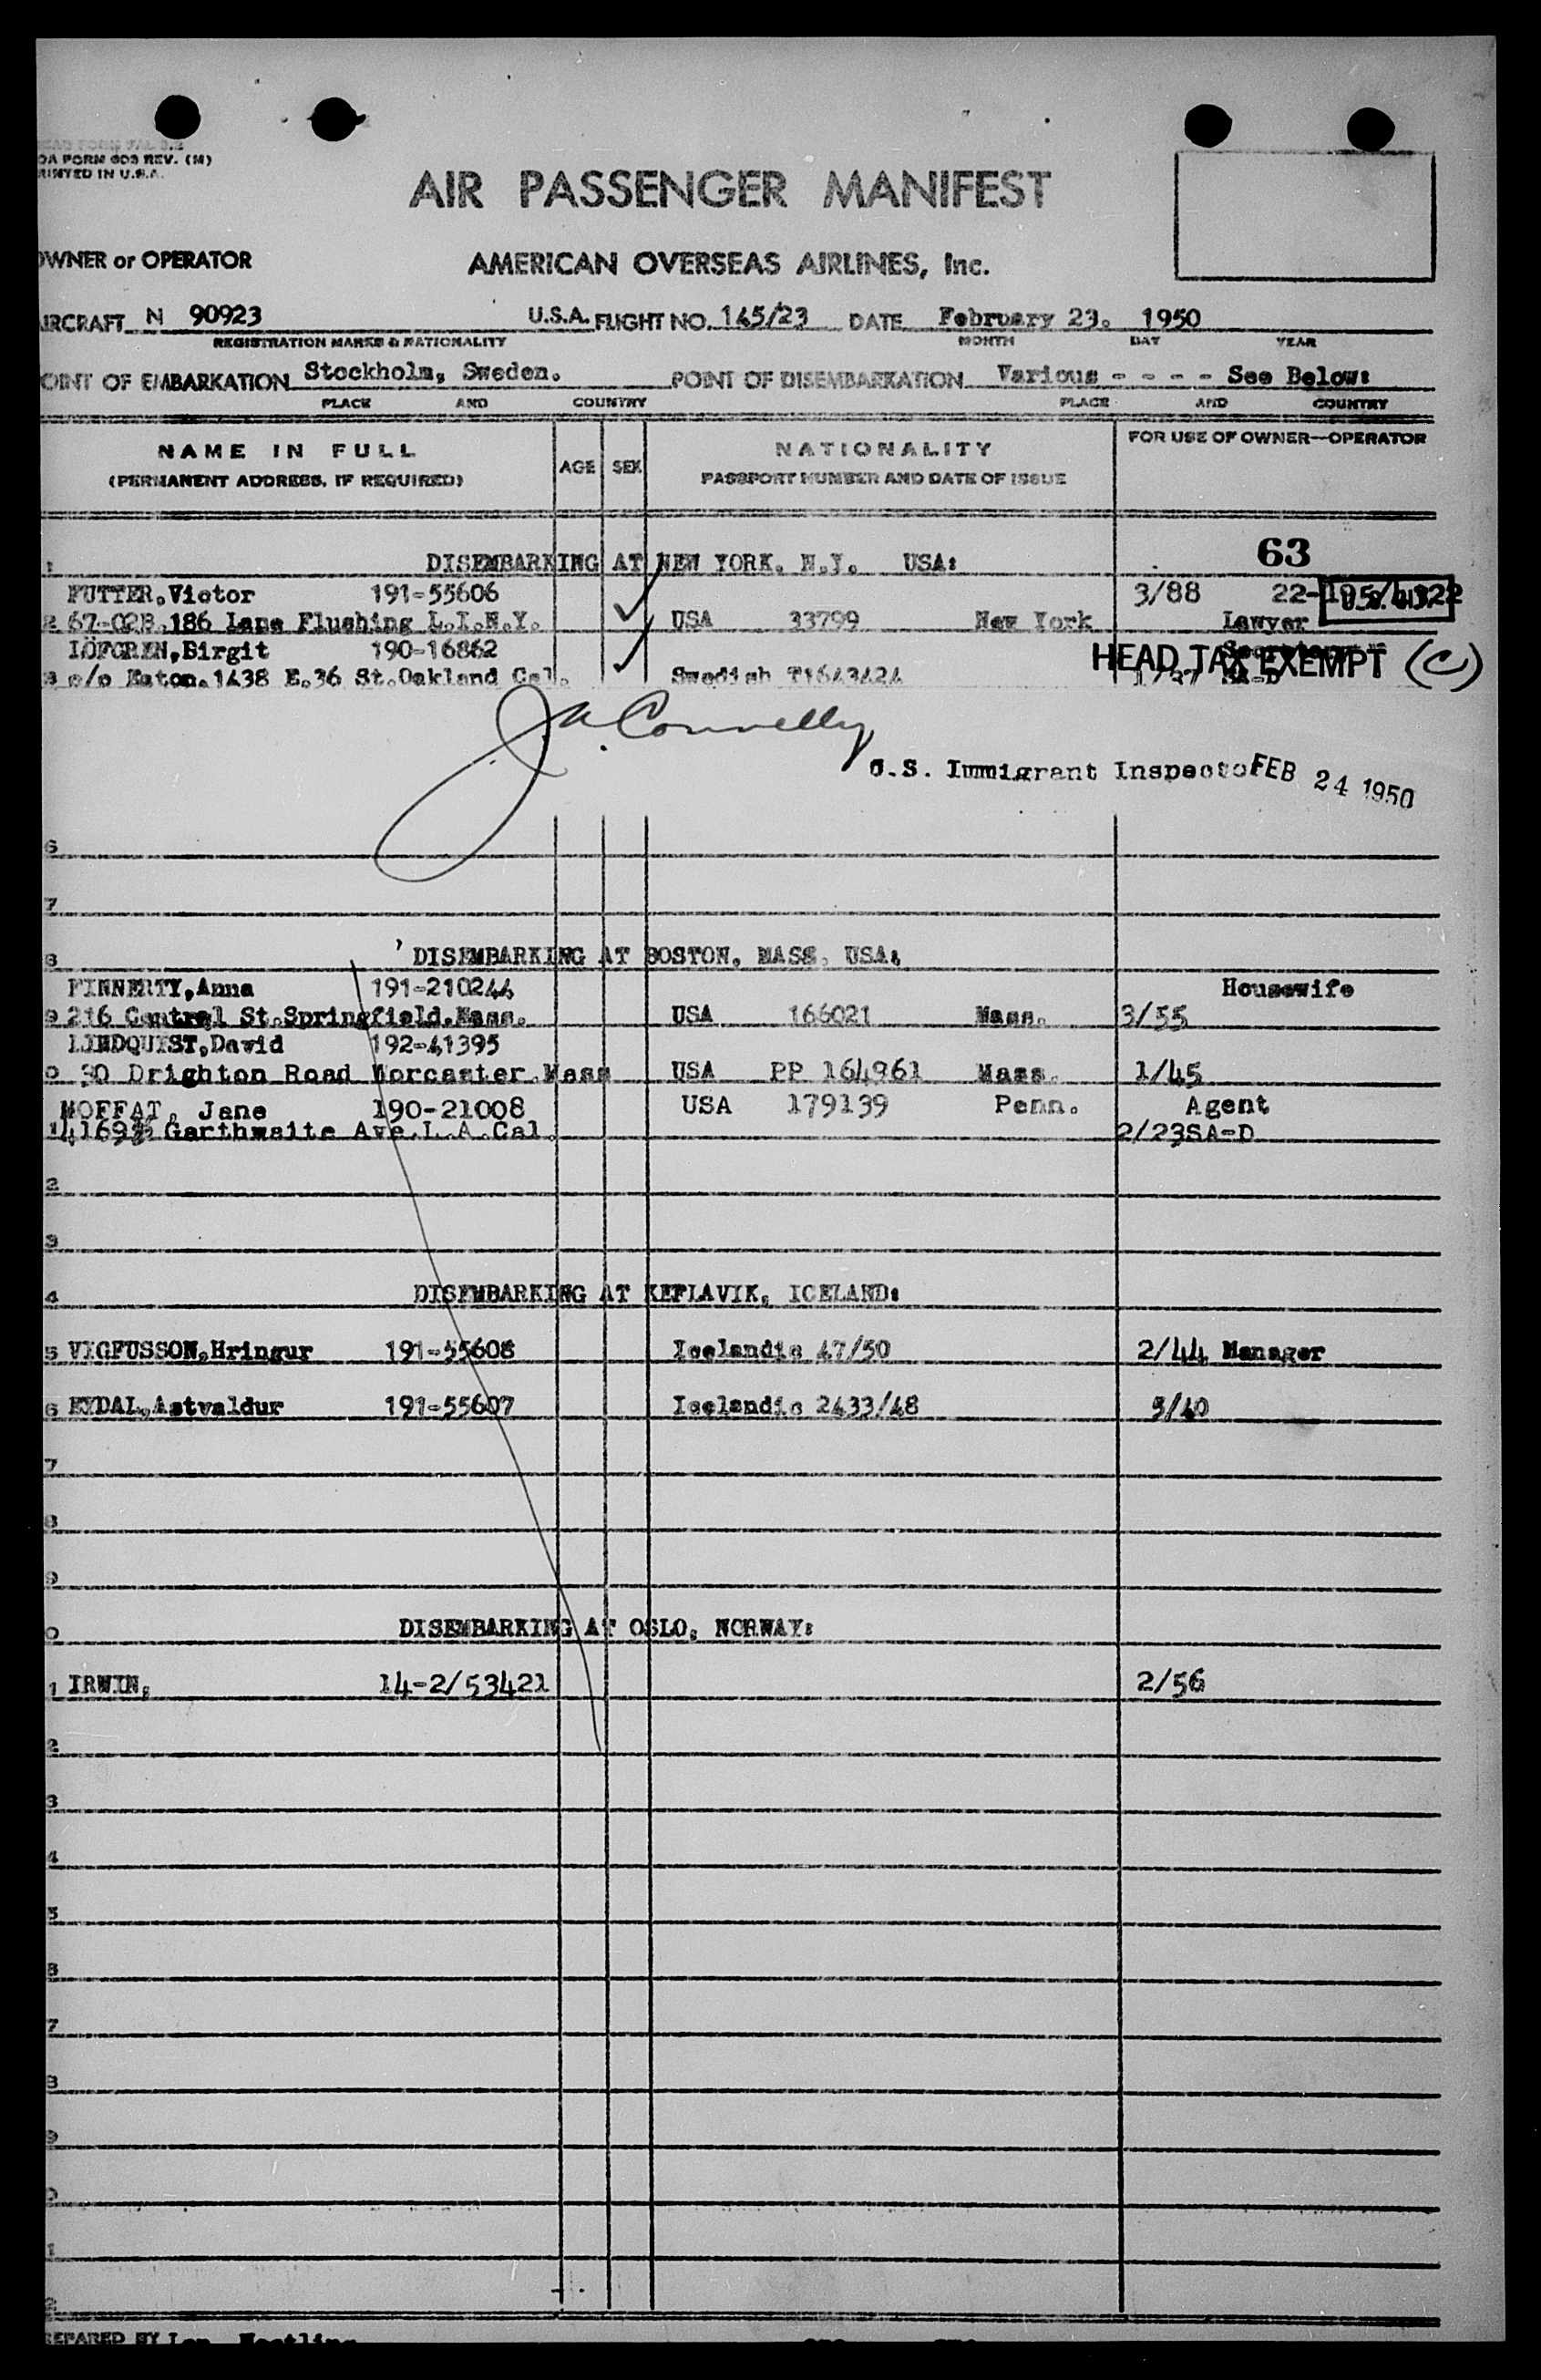 OA FORM 603 REV. (M)
RINTED IN U.S.A.
AIR PASSENGER MANIFEST
OWNER or OPERATOR AMERICAN OVERSEAS AIRLINES, Inc.
IRCRAFT N 90923 U.S.A. FLIGHT NO. 145/23 DATE February 23. 1950
REGISTRATION MARKS & NATIONALITY MONTH DAY YEAR
OINT OF EMBARKATION Stockholm, Sweden. POINT OF DISEMBARKATION Various - - - - See Below:
PLACE AND COUNTRY PLACE AND COUNTRY
NAME IN FULL AGE SEX NATIONALITY FOR USE OF OWNER—OPERATOR
(PERMANENT ADDRESS, IF REQUIRED) PASSPORT NUMBER AND DATE OF ISSUE
63
1 DISEMBARKING AT NEW YORK, N.Y. USA:
FUTTER,Victor 191-55606 3/88
2 67-02B,186 Lane Flushing L.I.N.Y. USA 33799 New York Lawyer
LOFGREN,Birgit 190-16862
3 c/o Eaton.1438 E.36 St.Oakland Cal. Swedish T1643424 HEAD TAX EXEMPT (C)
J. A. Connelly
U.S. Immigrant Inspector FEB 24 1950
6
7
8 DISEMBARKING AT BOSTON, MASS, USA:
FINNERTY,Anna 191-210244 Housewife
9 216 Central St.Springfield.Mass. USA 166021 Mass. 3/55
LINDQUIST,David 192-41395
0 30 Drighton Road Worcaster.Mass USA PP 164961 Mass. 1/45
MOFFAT, Jane 190-21008 USA 179139 Penn. Agent
1 4169½ Garthwaite Ave.L.A.Cal. 2/23SA-D
2
3
4 DISEMBARKING AT KEFLAVIK, ICELAND:
5 VIGFUSSON,Hringur 191-55608 Icelandic 47/50 2/44 Manager
6 EYDAL,Astvaldur 191-55607 Icelandic 2433/48 3/40
7
8
9
0 DISEMBARKING AT OSLO, NORWAY:
1 IRWIN, 14-2/53421 2/56
2
3
4
5
6
7
8
9
0
1
2
REPARED BY